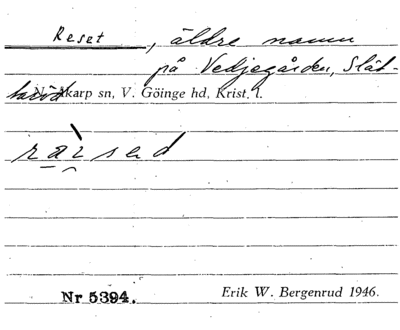 Reset, äldre namn
på Vedjegården, Slät-
karp sn, V. Göinge hd, Krist. l.
Nr 5394.
Erik W. Bergenrud 1946.